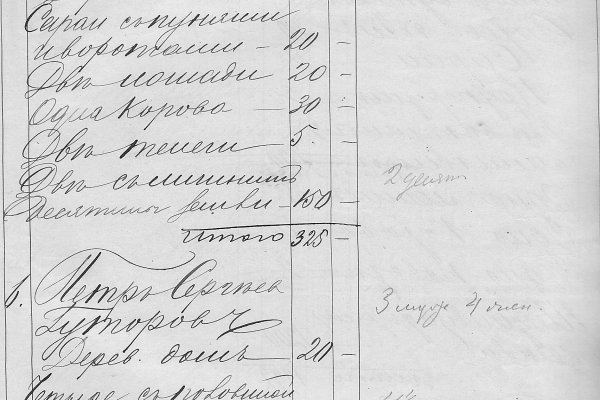 Сараи съ пунями
и воротами – 20 –
Двѣ лошади 20 –
Одна Корова – 30 –
Двѣ телеги 5. –
Двѣ съ
десятины земли – 150 – 2 десят
Итого 325 –
6. Петръ Сергѣев
Гуторовъ 3 муж 4 жен.
Дерев. домъ – 20 –
Четыре съ половиной